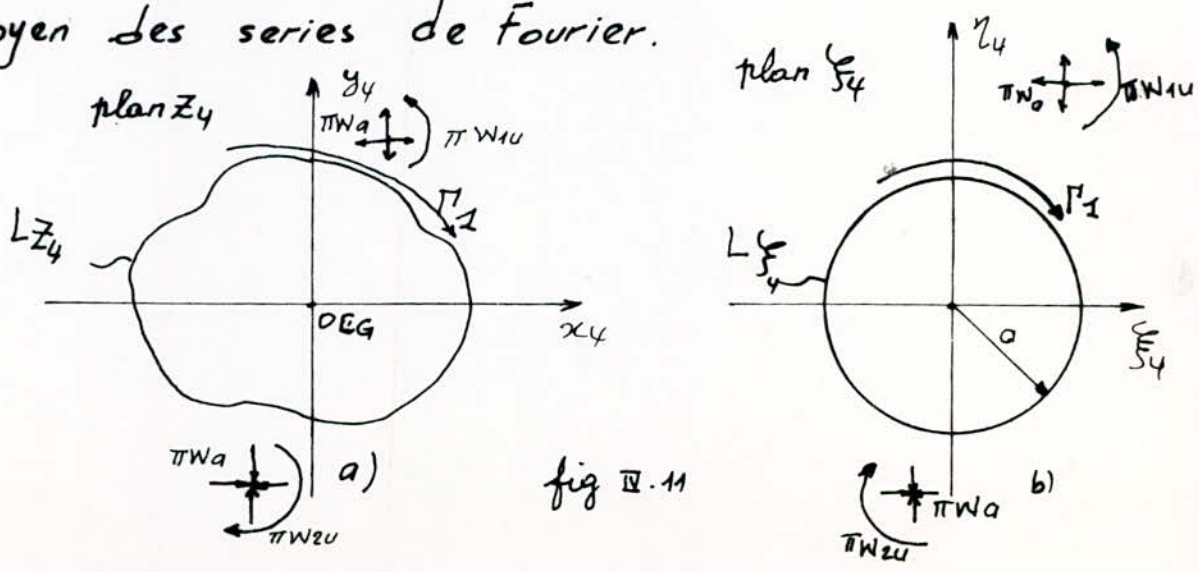 oyen des series de Fourier.
plan Z4
y4
πWa
πW1u
Γ1
LZ4
OEG
x4
πWa
πW2u
a)
fig IV.11
plan ξ4
η4
πWa
πW1u
Γ1
Lξ4
a
ξ4
πWa
πW2u
b)